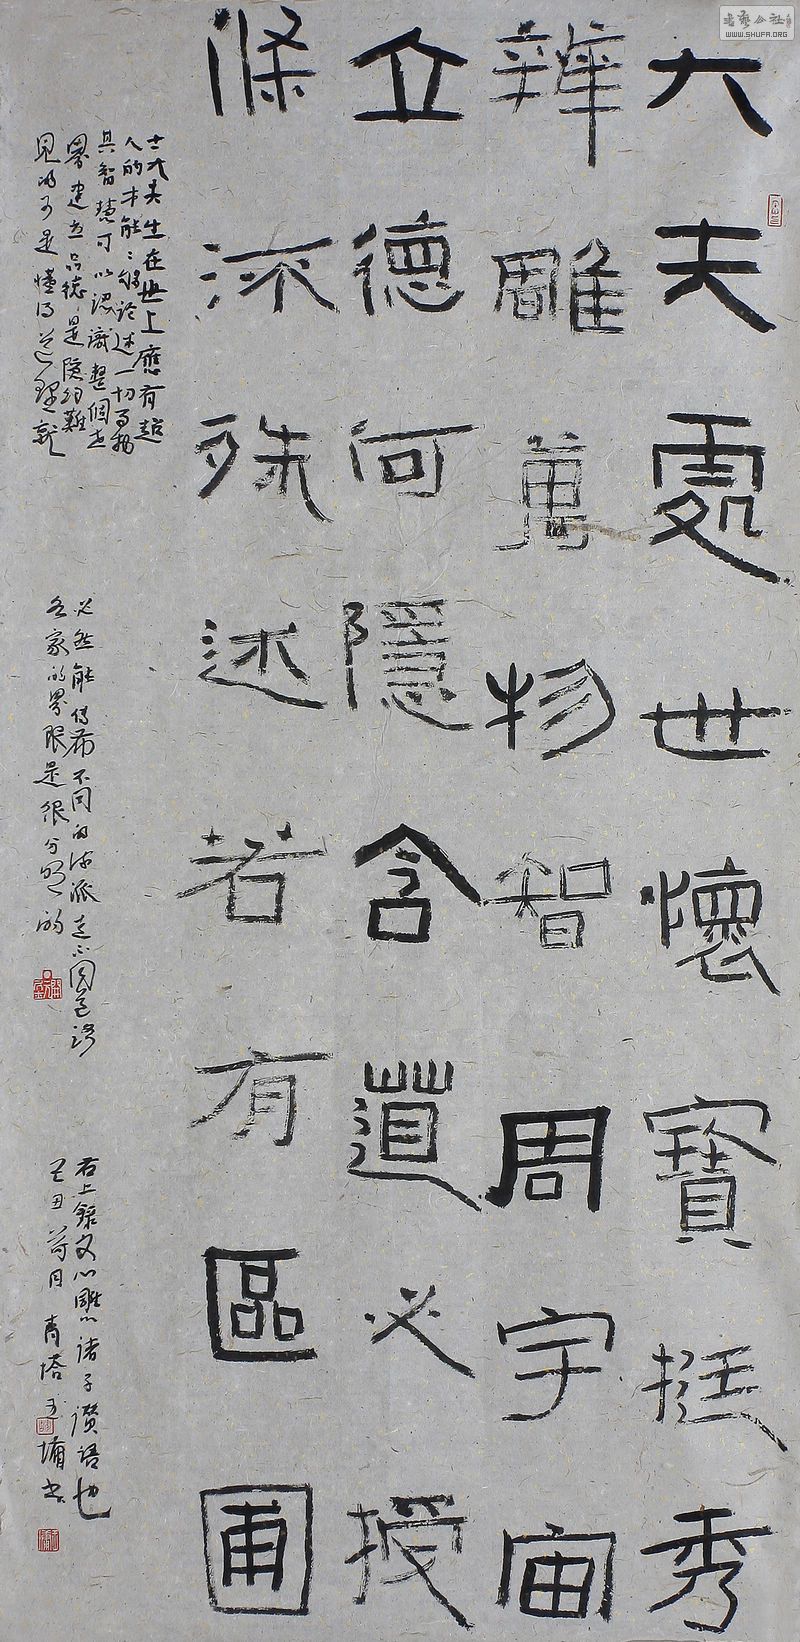 大夫處世懷寶挺秀
辨雕萬物智周宇宙
立德何隱含道必授
條流殊述若有區圃
士大夫生在世上應有超
人的才能能够論述一切事物
具智慧可以認識整個世
界建立品德是隱約難
見的可是懂得道理就
必然能傳布不同的流派走不同道路
各家的界限是很分明的
右上錄文心雕龍諸子讚語也
己丑荷月青塔玉墉書
書藝公社
WWW.SHUFA.ORG